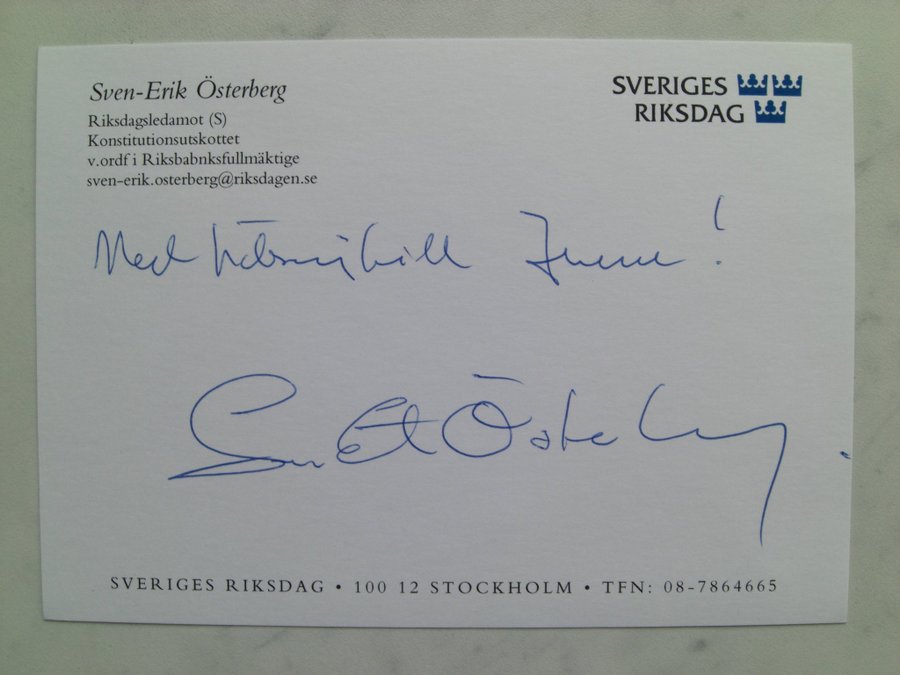 Sven-Erik Österberg
Riksdagsledamot (S)
Konstitutionsutskottet
v.ordf i Riksbabnksfullmäktige
sven-erik.osterberg@riksdagen.se
SVERIGES
RIKSDAG
Med hälsning till !
Sven-Erik Österberg
SVERIGES RIKSDAG • 100 12 STOCKHOLM • TFN: 08-7864665